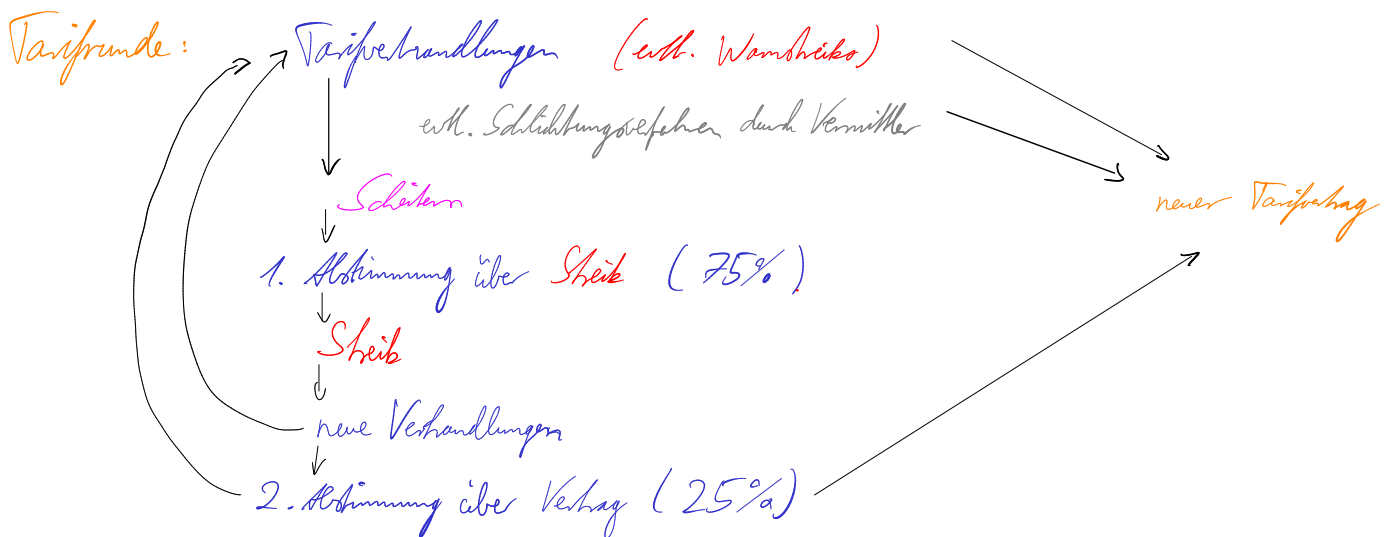 Tarifrunde: Tarifverhandlungen (evtl. Warnstreiks)
evtl. Schlichtungsverfahren durch Vermittler
Scheitern
neuer Tarifvertrag
1. Abstimmung über Streik (75%)
Streik
neue Verhandlungen
2. Abstimmung über Vertrag (25%)